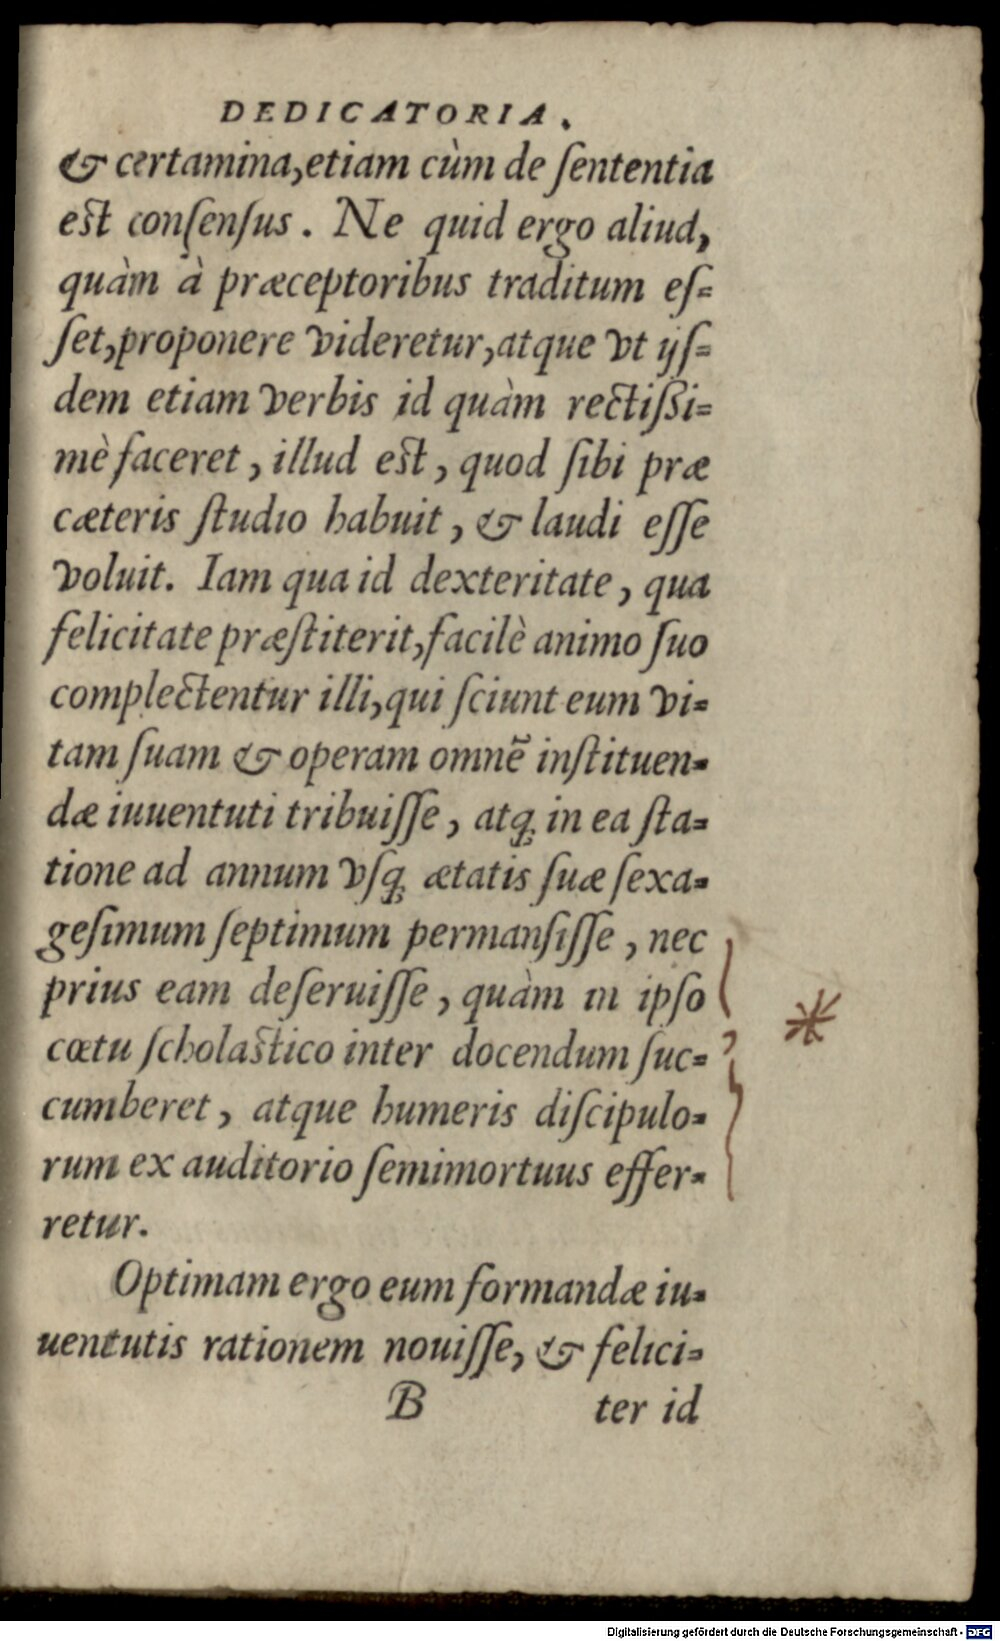 DEDICATORIA.
& certamina, etiam cùm de ſententia
eſt conſenſus. Ne quid ergo aliud,
quàm à præceptoribus traditum eſ=
ſet, proponere videretur, atque vt ijſ=
dem etiam verbis id quàm rectißi=
mè faceret, illud eſt, quod ſibi præ
cæteris ſtudio habuit, & laudi eſſe
voluit. Iam qua id dexteritate, qua
felicitate præſtiterit, facilè animo ſuo
complectentur illi, qui ſciunt eum vi=
tam ſuam & operam omnẽ inſtituen=
dæ iuuentuti tribuiſſe, atq; in ea ſta=
tione ad annum vſq; ætatis ſuæ ſexa=
geſimum ſeptimum permanſiſſe, nec
prius eam deſeruiſſe, quàm in ipſo
cœtu ſcholaſtico inter docendum ſuc=
cumberet, atque humeris diſcipulo=
rum ex auditorio ſemimortuus effer=
retur.
Optimam ergo eum formandæ iu=
uentutis rationem nouiſſe, & felici=
B ter id
Digitalisierung gefördert durch die Deutsche Forschungsgemeinschaft - DFG